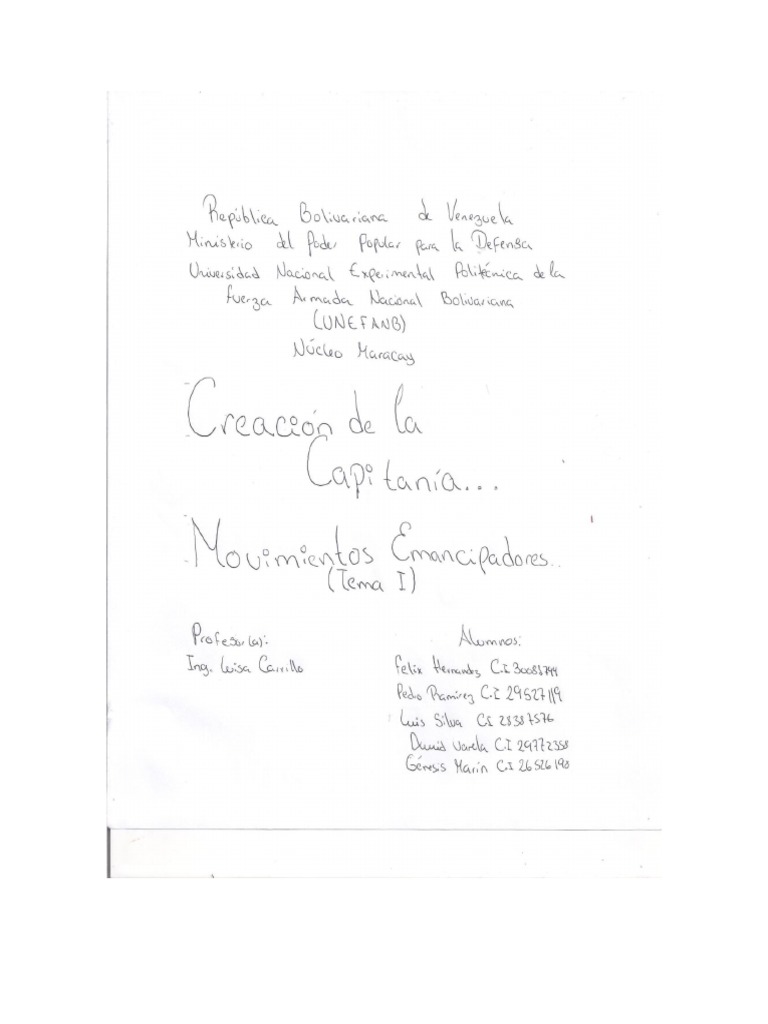 República Bolivariana de Venezuela
Ministerio del Poder Popular para la Defensa
Universidad Nacional Experimental Politécnica de la
Fuerza Armada Nacional Bolivariana
(UNEFANB)
Núcleo Maracay
Creación de la
Capitanía...
Movimientos Emancipadores..
(Tema I)
Profesor(a):
Ing. Luisa Carrillo
Alumnos:
Felix Hernandz C.I
Pedro Ramírez C.I 29527119
Luis Silva CI 28387576
David Varela C.I 29772358
Génesis Marín C.I 26526190